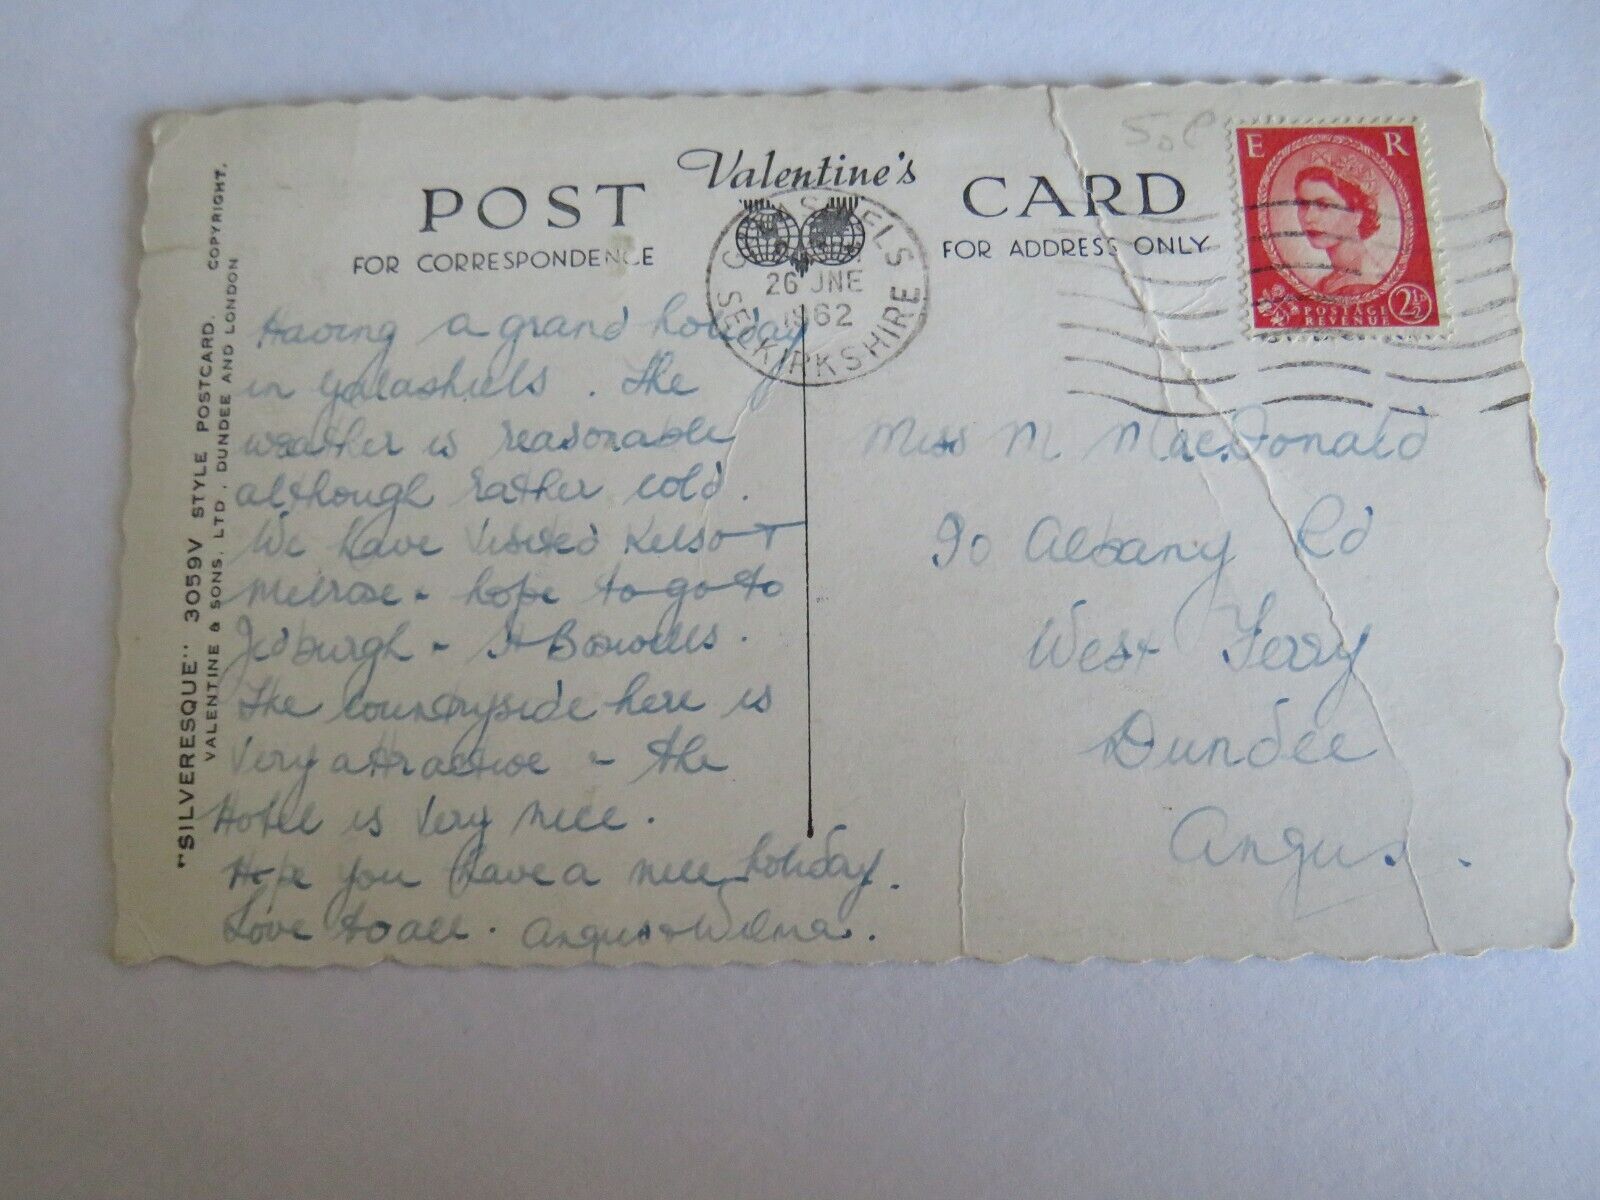 Valentine's
POST CARD
FOR CORRESPONDENCE
FOR ADDRESS ONLY
"SILVERESQUE" 3059V STYLE POSTCARD. COPYRIGHT.
VALENTINE & SONS, LTD., DUNDEE AND LONDON
GALASHIELS
26 JNE
1962
SELKIRKSHIRE
E R
POSTAGE
REVENUE
2½D
Having a grand holiday
in Galashiels. The
weather is reasonable
although rather cold.
We have visited Kelso +
Melrose - hope to go to
Jedburgh - St Boswells.
The countryside here is
very attractive - the
Hotel is very nice.
Hope you have a nice holiday.
Love to all. Angus + Wilma.
Miss M MacDonald
90 Albany Rd
West Ferry
Dundee
Angus.